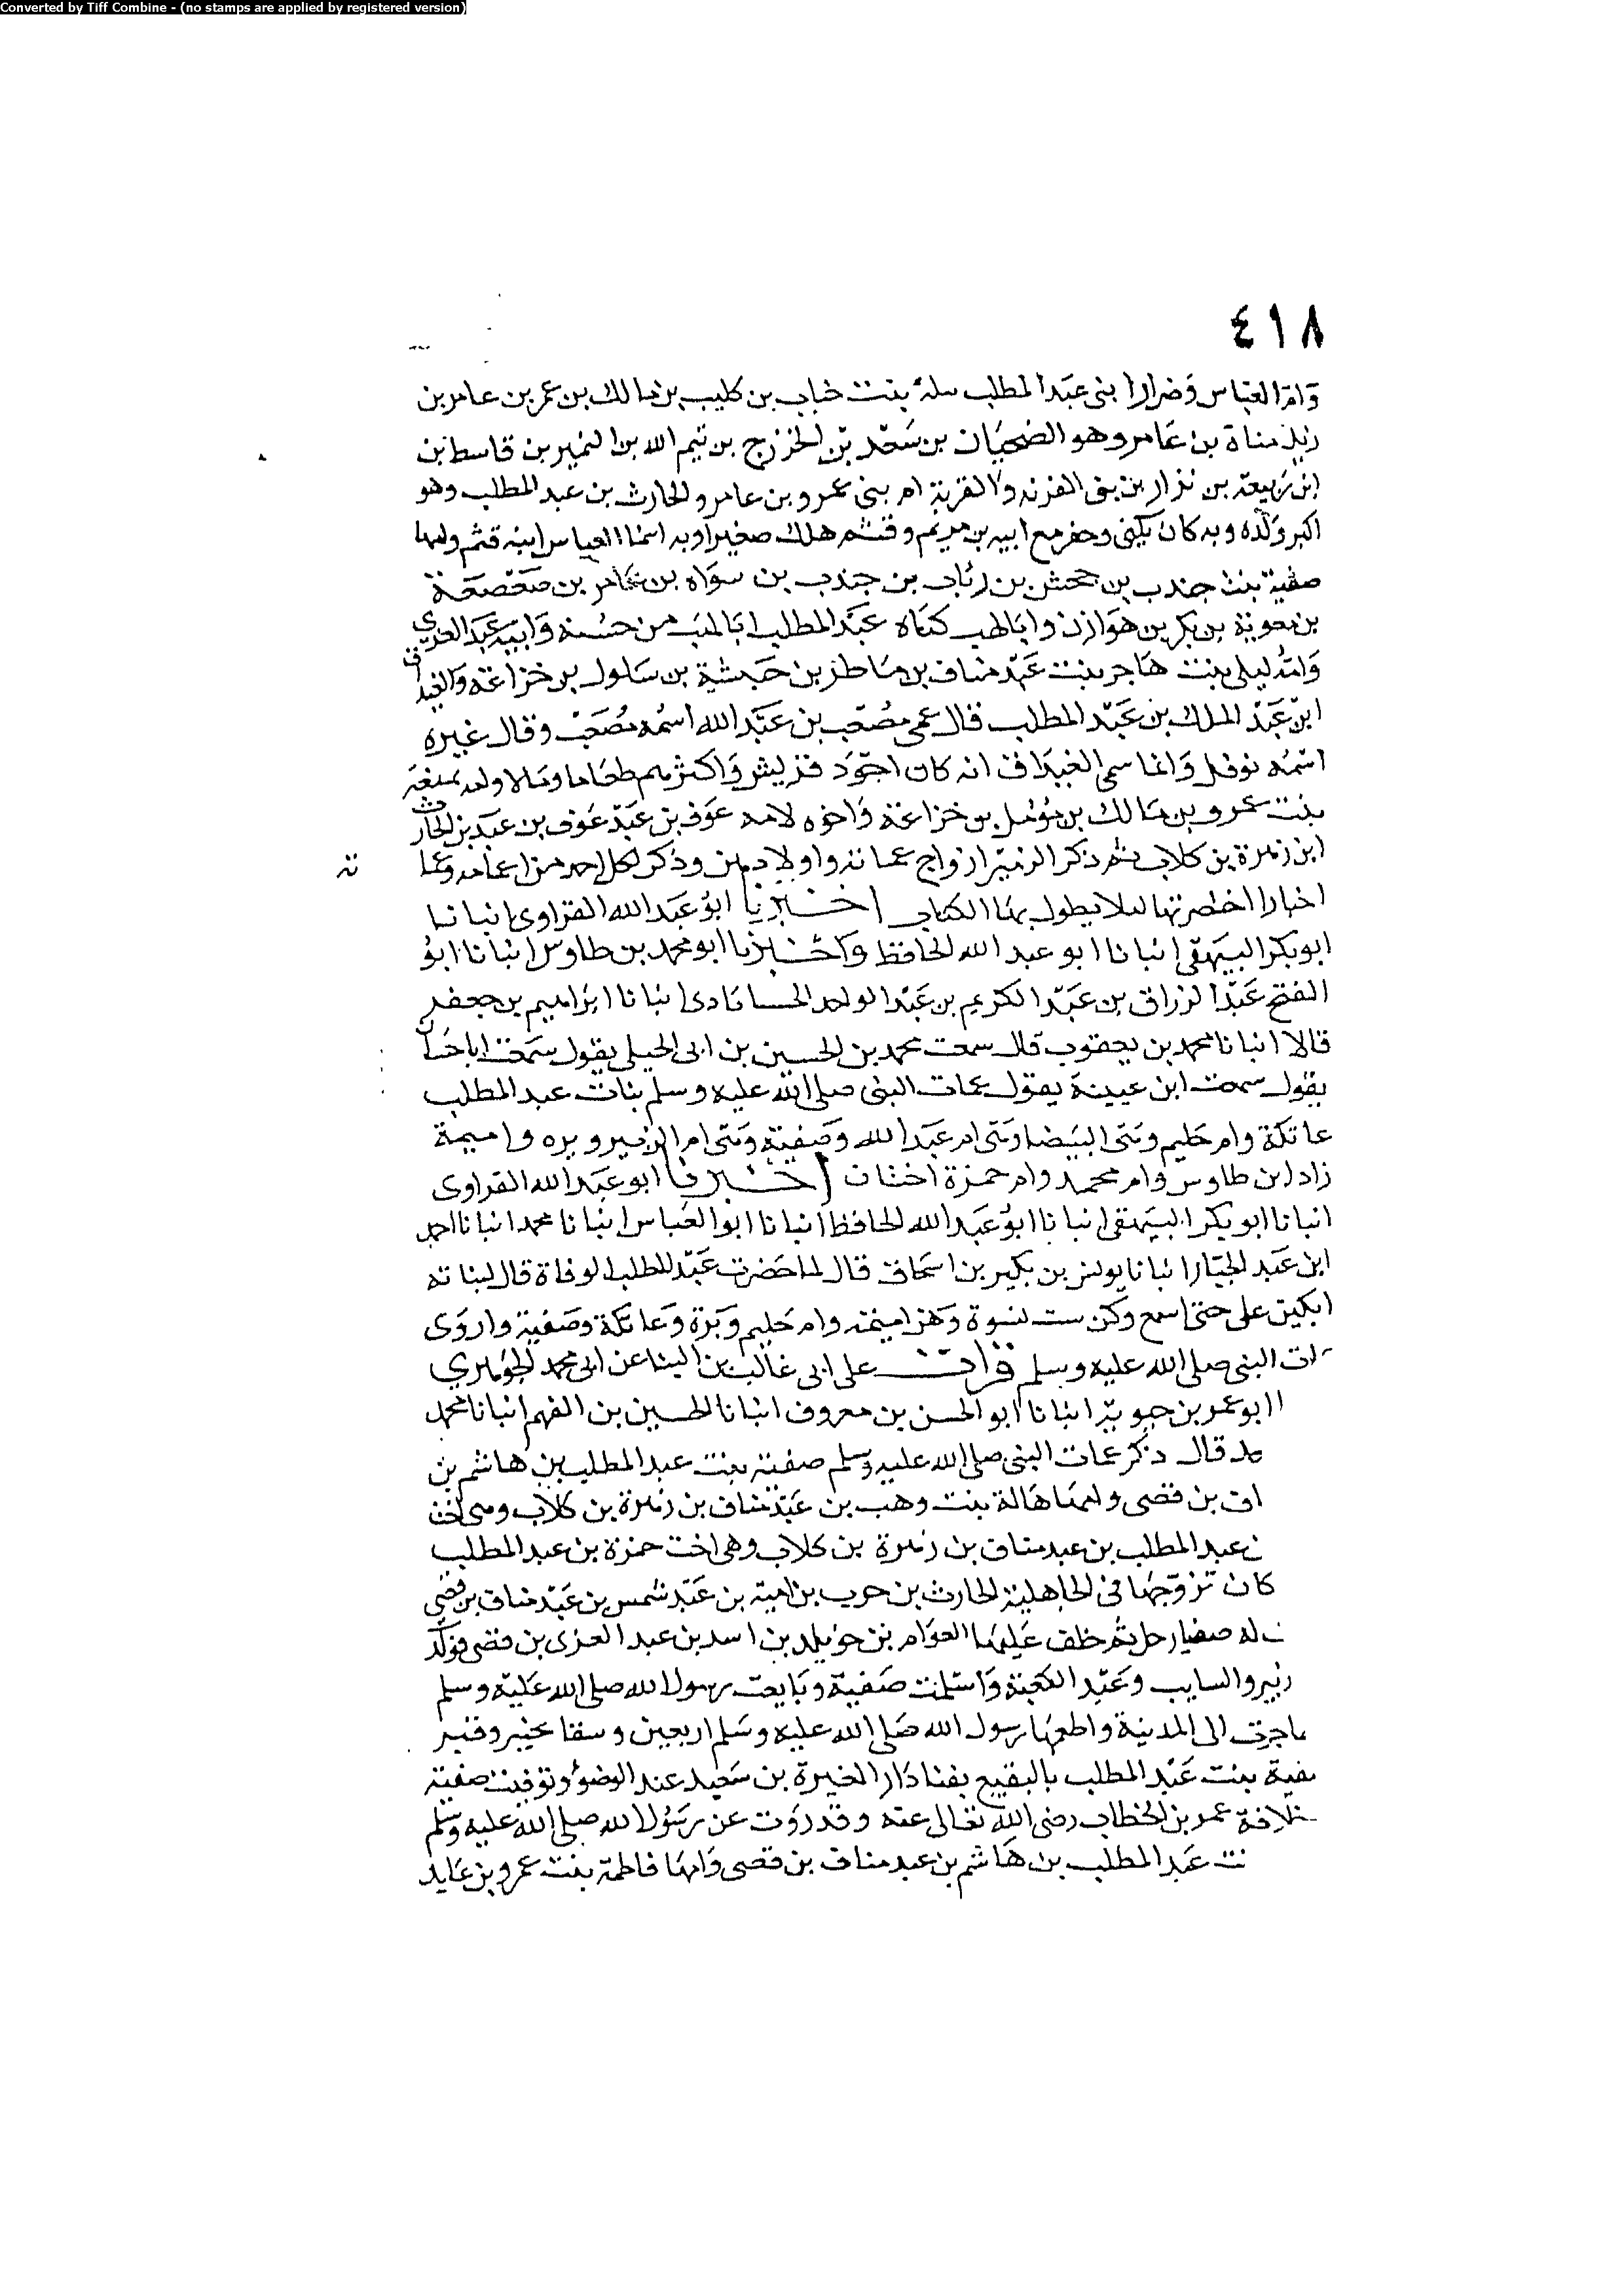 Converted by Tiff Combine - (no stamps are applied by registered version)
٤١٨
وام العباس وضرارا بنى عبد المطلب بنت خباب بن كليب بن مالك بن عمر بن عامر بن
زيد مناة بن عامر وهو الضحيان بن سعد بن الخزرج بن تيم الله بن النمير بن قاسط بن
ابن ربيعة بن نزار بن والقرية ام بنى عمرو بن عامر والحارث بن عبد المطلب وهو
اكبر ولده وبه كان يكنى وحفر مع ابيه بير زمزم وقثم هلك صغيرا وبه اسما العباس ابنه قثم وامهما
صفية بنت جندب بن جحش بن رئاب بن جندب بن سواه بن عامر بن صعصعة
بن معوية بن بكر بن هوازن وابا لهب كناه عبد المطلب ابا لهب من حسنه وابيه عبد العزى
وامه ليلى بنت هاجر بنت عبد مناف بن ضاطر بن حبشية بن سلول بن خزاعة والغيداق
ابن عبد الملك بن عبد المطلب قال عمى مصعب بن عبد الله اسمه مصعب وقال غيره
اسمه نوفل وانما سمى الغيداق انه كان اجود قريش واكثرهم طعاما ومالا وامه ممنعة
بنت عمرو بن مالك بن مؤمل بن خزاعة واخوه لامه عوف بن عبد عوف بن عبد بن الحارث
ابن زهرة بن كلاب ثم ذكر الزبير ازواج عماته واولادهن وذكر لكل احد من اعمامه وعما
ته
اخبارا اختصرتها ليلا يطول بها الكتاب اخبرنا ابو عبد الله الفراوى انبانا
ابو بكر البيهقى انبانا ابو عبد الله الحافظ واخبرنا ابو محمد بن طاوس انبانا ابو
الفتح عبد الرزاق بن عبد الكريم بن عبد الواحد الحسناباذى انبانا ابراهيم بن جعفر
قالا انبانا محمد بن يعقوب قال سمعت محمد بن الحسين بن ابى يقول سمعت ابا حسان
يقول سمعت ابن عيينة يقول عمات النبى صلى الله عليه وسلم بنات عبد المطلب
عاتكة وام حكيم وهى البيضا وهى ام عبد الله وصفية وهى ام الزبير وبره واميمة
زاد ابن طاوس وام محمد وام حمزة اختان اخبرنا ابو عبد الله الفراوى
انبانا ابو بكر البيهقى انبانا ابو عبد الله الحافظ انبانا ابو العباس انبانا محمد انبانا احمد
ابن عبد الجبار انبانا يونس بن بكير بن اسحاق قال لما حضرت عبد المطلب الوفاة قال لبناته
ابكين على حتى اسمع وكن ست نسوة وهن اميمة وام حكيم وبرة وعاتكة وصفية واروى
ات النبى صلى الله عليه وسلم قرات على ابى غالب بن البنا عن ابى محمد الجوهري
ا ابو عمر بن حيويه انبانا ابو الحسن بن معروف انبانا الحسين بن الفهم انبانا محمد
عد قال ذكر عمات النبى صلى الله عليه وسلم صفية بنت عبد المطلب بن هاشم بن
اف بن قصى وامها هالة بنت وهب بن عبد مناف بن زهرة بن كلاب وهى اخت
ن عبد المطلب بن عبد مناف بن زهرة بن كلاب وهى اخت حمزة بن عبد المطلب
كان تزوجها فى الجاهلية الحارث بن حرب بن امية بن عبد شمس بن عبد مناف بن قصى
ت له صفيا رجل ثم خلف عليها العوام بن خويلد بن اسد بن عبد العزى بن قصى فولد
زبير والسايب وعبد الكعبة واسلمت صفية وبايعت رسول الله صلى الله عليه وسلم
هاجرت الى المدينة واطعمها رسول الله صلى الله عليه وسلم اربعين وسقا بخيبر وقبر
صفية بنت عبد المطلب بالبقيع بفنا دار المغيرة بن سعيد عند الوضوء وتوفيت صفية
خلافة عمر بن الخطاب رضى الله تعالى عنه وقد روت عن رسول الله صلى الله عليه وسلم
نت عبد المطلب بن هاشم بن عبد مناف بن قصى وامها فاطمة بنت عمرو بن عايد